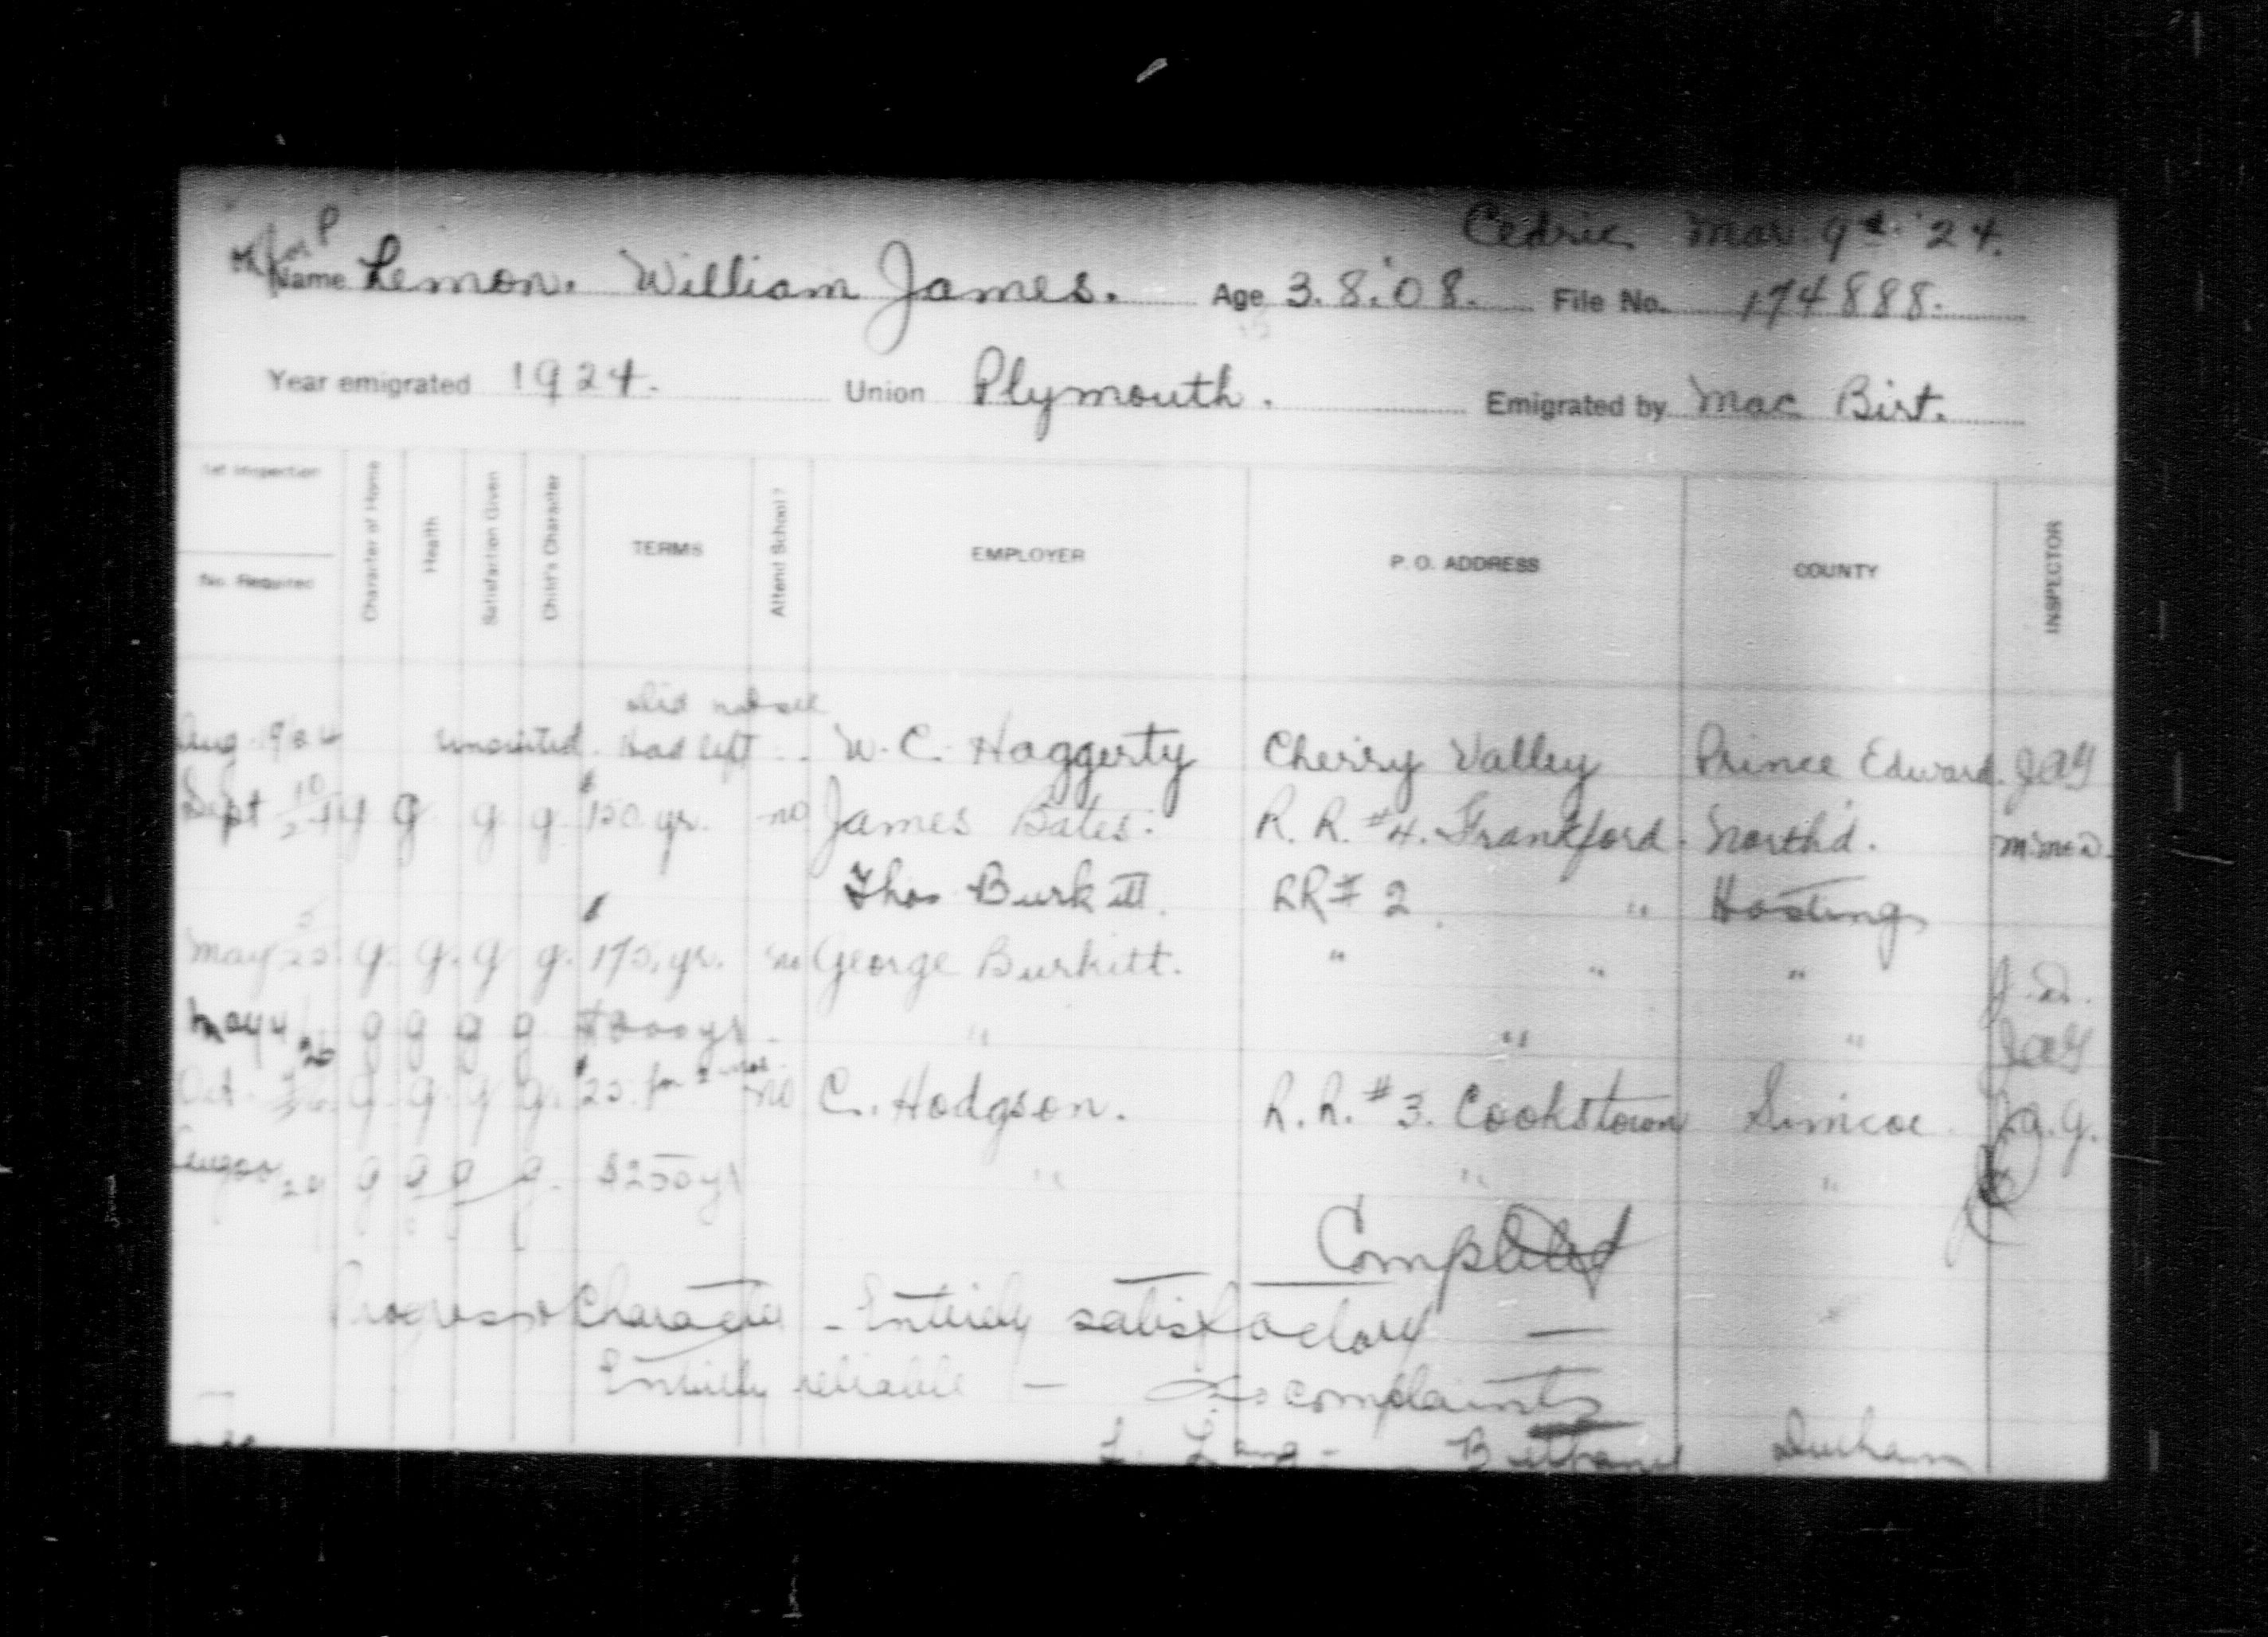 Cedric Mar. 9th '24.
Name Lemon. William James. Age 3.8.'08. File No. 174888.
Year emigrated 1924. Union Plymouth. Emigrated by Mac Birt.
1st Inspection
No. Required
Character of Home
Health
Satisfaction Given
Child's Character
TERMS
Attend School?
EMPLOYER
P. O. ADDRESS
COUNTY
INSPECTOR
did not see
Aug had left W. C. Haggerty Cherry Valley Prince Edward. JAG
Sept 10 g g g g. yr. no James Bates. R. R. #4. Frankford. North'd.
Thos Burkitt. RR # 2 " Hastings
May 25. g. g. g g. $175. yr. no George Burkitt. " " "
May 4 26 g g g g yr " " " JAG
Oct. g. g. g g. $25. for no C. Hodgson. R. R. #3. Cookstown Simcoe J.a.g.
g g g g. $250 yr " " "
Completed
Progress & Character - Entirely satisfactory —
Entirely reliable — No complaints
L. Lang - Bethany Durham